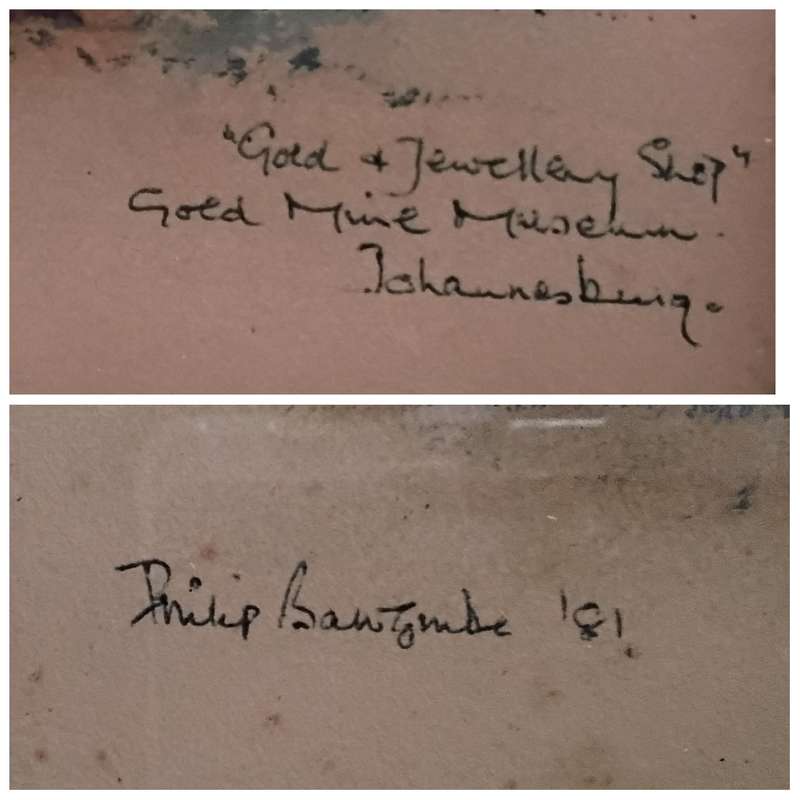 "Gold + Jewellery Shop"
Gold Mine Museum.
Johannesburg.
Philip Bawcombe '81